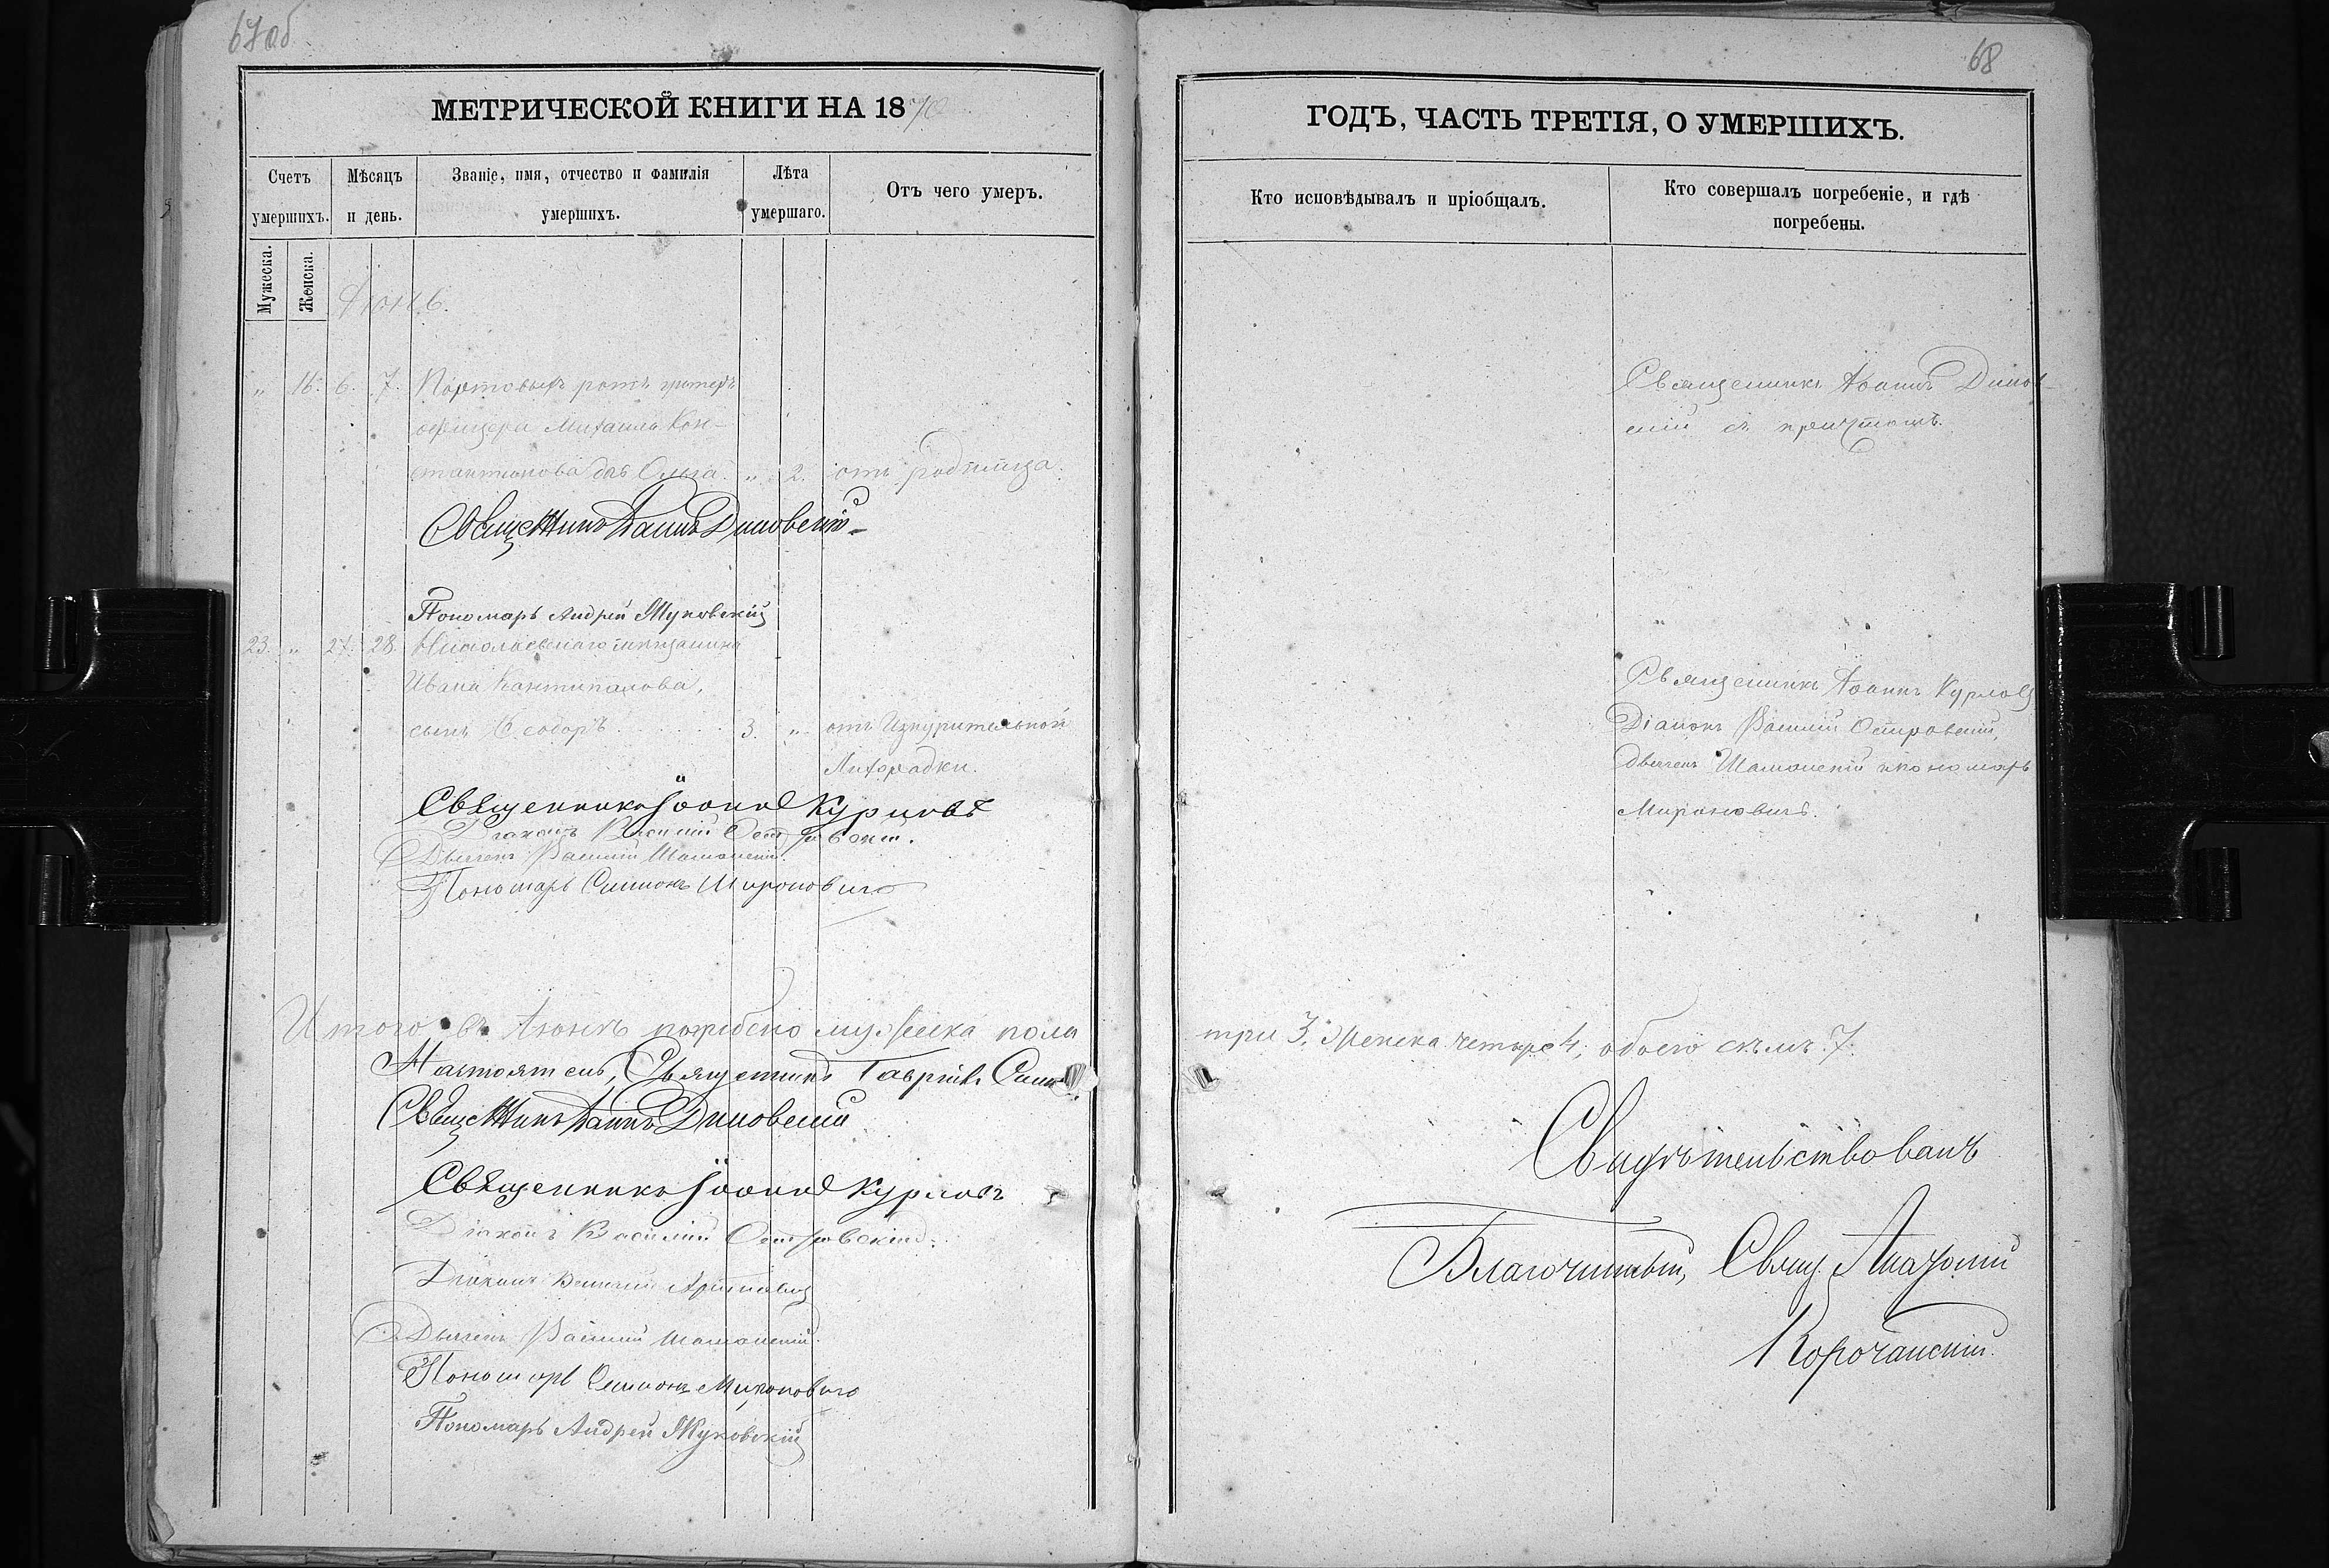 67об
МЕТРИЧЕСКОЙ КНИГИ НА 1870
Счетъ умершихъ.
Мѣсяцъ и день.
Званіе, имя, отчество и фамилія умершихъ.
Лѣта умершаго.
Отъ чего умер.
Мужеска.
Женска.
Іюнь.
„ 16. 6. 7. Портовыхъ ротъ унтеръ
офицера Михаила Кон-
стантинова дочь Ольга. „ 2. отъ родимца.
Священникъ Іоаннъ Диковскій
Пономарь Андрей Жуковскій
23. „ 27. 28. Николаевскаго мѣщанина
Ивана
сынъ Ѳеодоръ 3. „ отъ Изнурительной
Лихорадки.
Священникъ Іоаннъ Курловъ
Діаконъ Василій Островскій.
Дьячекъ Василій
Пономарь Симеонъ Мироновичъ
Итого въ Іюнѣ погребено мужеска пола
Настоятель, Священникъ Гавріилъ
Священникъ Іоаннъ Диковскій
Священникъ Іоаннъ Курловъ
Діаконъ Василій Островскій.
Діаконъ
Дьячекъ Василій
Пономарь Симеонъ Мироновичъ
Пономарь Андрей Жуковскій
68
ГОДЪ, ЧАСТЬ ТРЕТІЯ, О УМЕРШИХЪ.
Кто исповѣдывалъ и пріобщалъ.
Кто совершалъ погребеніе, и гдѣ
погребены.
Священникъ Іоаннъ Диков-
скій съ причтомъ.
Священникъ Іоаннъ Курловъ
Діаконъ Василій Островскій,
дьячекъ и пономарь
Мироновичъ.
три 3, Женска четыре 4, обоего семь 7.
Свидѣтельствовалъ
Благочинный, Свящ.
Корочанскій.